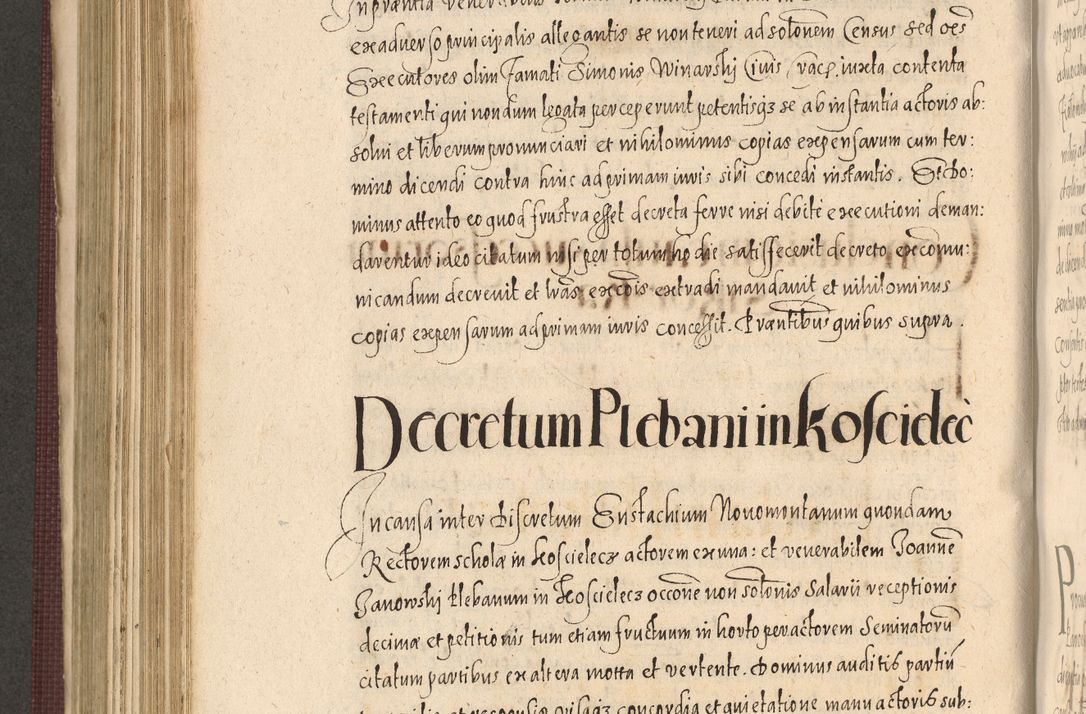 ex adverso principalis allegantis se non teneri ad solõnem Census sed oẽs
Executores olim famati Simonis Winarski Civis Crac. iuxta contenta
testamenti qui nondum legata perceperunt petentisqȝ se ab instantia actoris ab:
solvi et liberum pronunciari et nihilominus copias expensarum cum ter:
mino dicendi contra hinc ad primam iuris sibi concedi instantis. Et Do:
minus attento eo quod frustra esset decreta ferre nisi debitè executioni deman:
darentur ideo citatum nisi per totum hodie satisfecerit decreto excõmu:
nicandum decrevit et lrãs excõis extradi mandavit et nihilominus
copias expensarum ad primam iuris concessit. Præntibus quibus supra.
Decretum Plebani in Kościelec
In causa inter Discretum Eustachium Novomontanum quondam
Rectorem scholæ in Kościelecz actorem ex una: et venerabilem Joannẽ
Janowski Plebanum in Kościelecz occõne non solõnis Salarii receptionis
decimæ et petitionis tum etiam fructuum in horto per actorem Seminatorũ
citatum partibus ex altera motta et vertente. Dominus auditis partiũ
concordia et quietatione manu actoris sub: